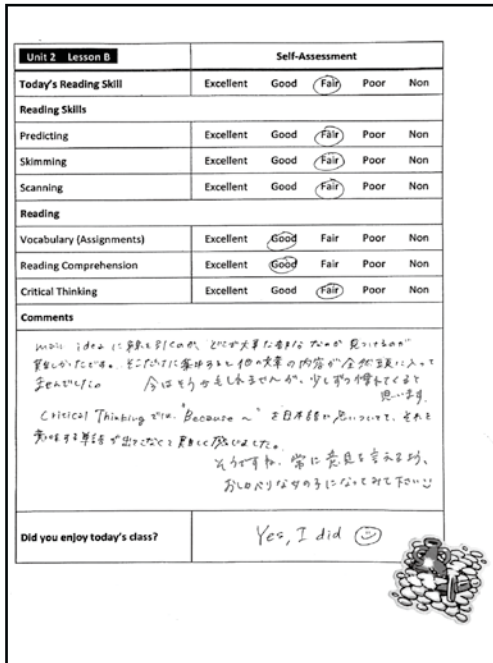 Unit 2 Lesson B Self-Assessment
Today's Reading Skill Excellent Good Fair Poor Non
Reading Skills
Predicting Excellent Good Fair Poor Non
Skimming Excellent Good Fair Poor Non
Scanning Excellent Good Fair Poor Non
Reading
Vocabulary (Assignments) Excellent Good Fair Poor Non
Reading Comprehension Excellent Good Fair Poor Non
Critical Thinking Excellent Good Fair Poor Non
Comments
main idea に線を引くのが、どこが大事な なのか 見つけるのが
難しかったです。そこだけに集中すると他の文章の内容が全然頭に入って
ませんでした。 今はそうかもしれませんが、少しずつ慣れてくると
思います。
Critical Thinking では、"Because ~" を日本語が思いついて、それを
意味する単語が出てこなくて難しく感じました。
そうですね、常に意見を言えるよう、
おしゃべりな女の子になってみて下さい
Did you enjoy today's class? Yes, I did